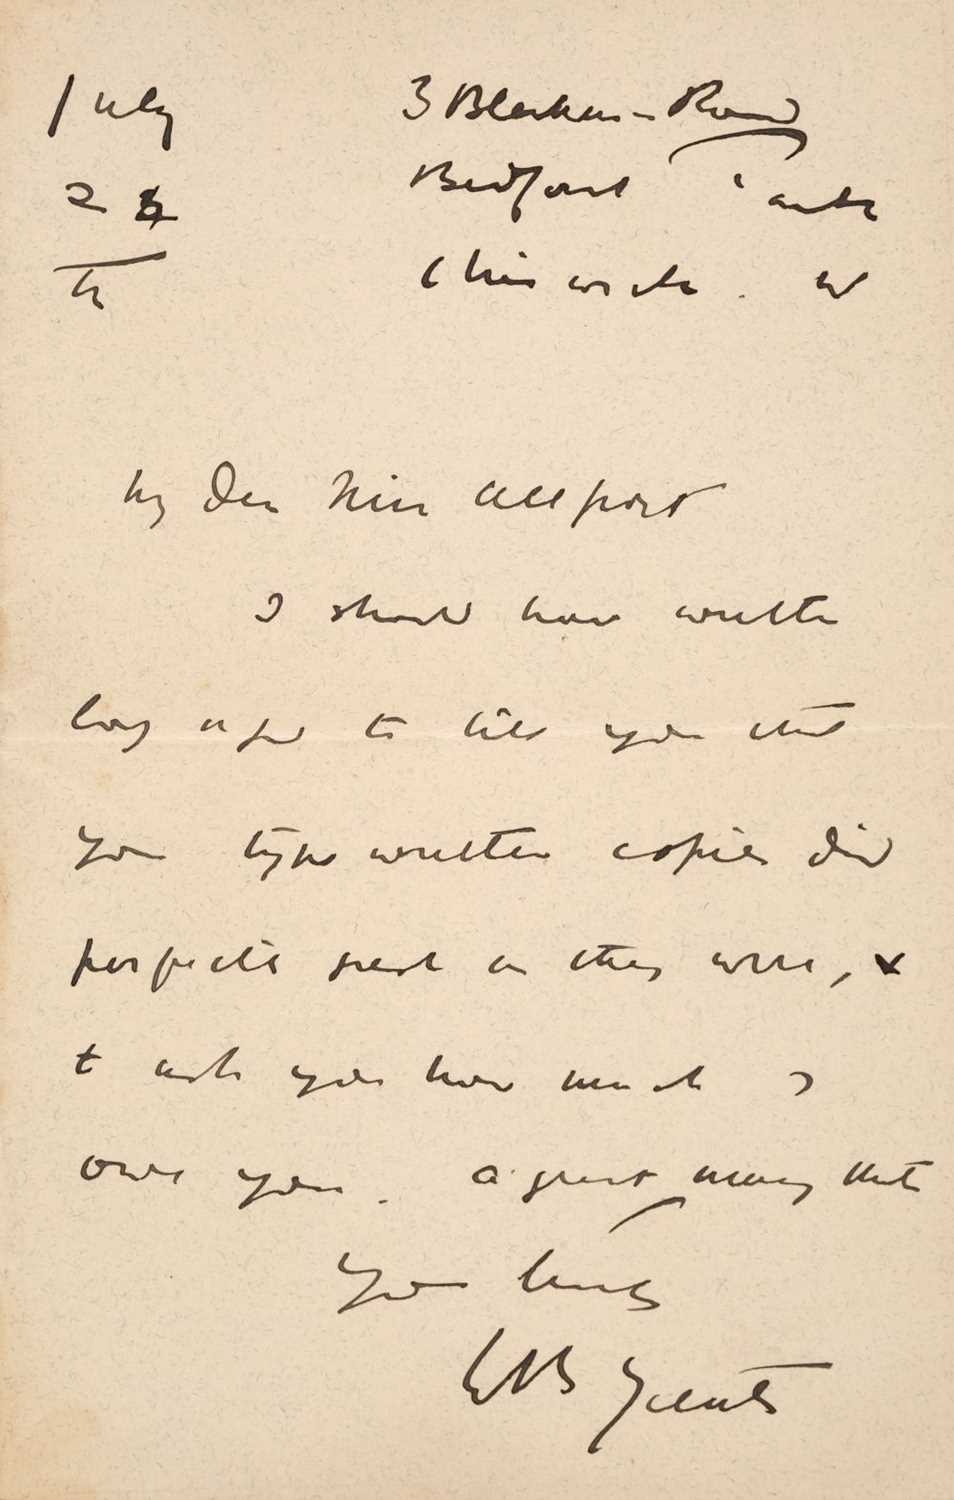 July 3 Blenheim Road
Bedford Park
th Chiswick. W
My Dear Miss Allport
I should have written
long ago to tell you that
your type written copies did
perfectly great as they were, &
to ask you how much I
owe you. A great many thanks
Yours sincely
WB Yeats